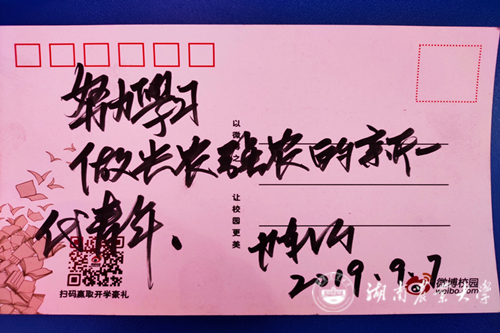 努力学习
做农强农的新一
代青年、
以微 之 让校园更美
2019.9.7
扫码赢取开学豪礼
微博校园
weibo.com
湖南农业大学